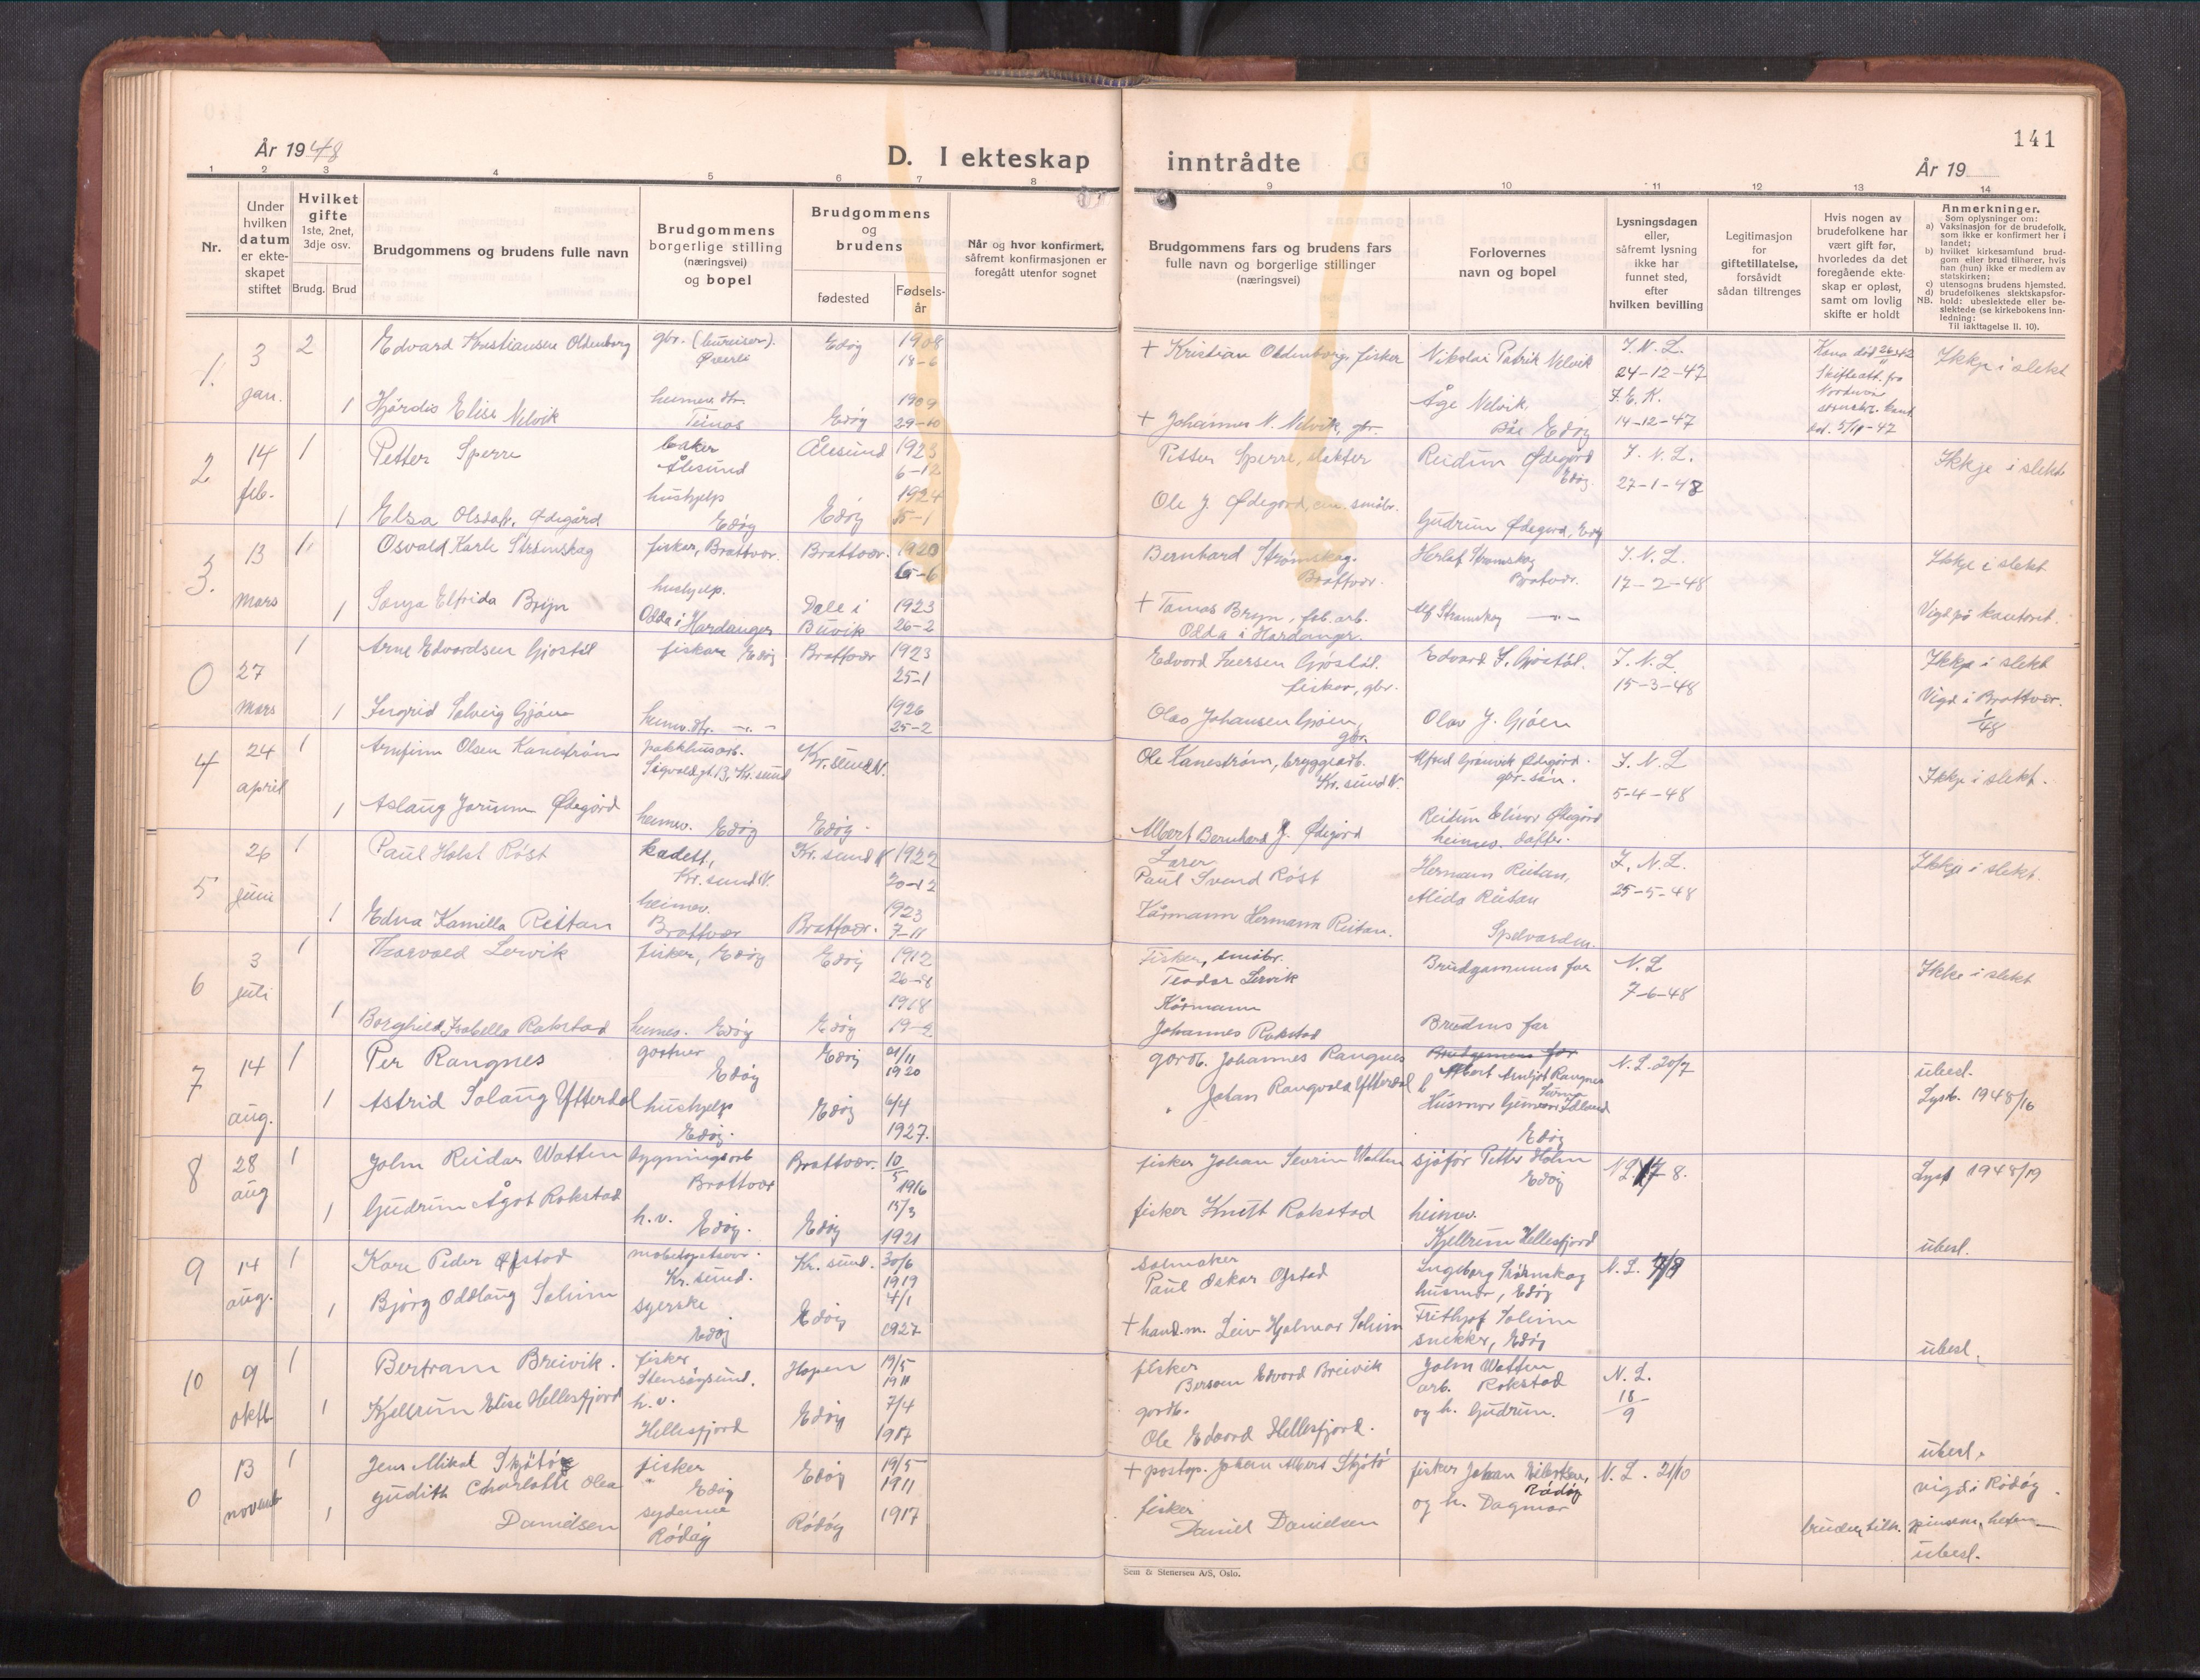 141
År 1948
D. I ekteskap inntrådte
År 19
1 2 3 4 5 6 7 8 9 10 11 12 13 14
Nr.
Under hvilken datum er ekteskapet stiftet
Hvilket gifte 1ste, 2net, 3dje osv.
Brudg. Brud
Brudgommens og brudens fulle navn
Brudgommens borgerlige stilling (næringsvei) og bopel
Brudgommens og brudens
fødested
Fødselsår
Når og hvor konfirmert, såfremt konfirmasjonen er foregått utenfor sognet
Brudgommens fars og brudens fars fulle navn og borgerlige stillinger (næringsvei)
Forlovernes navn og bopel
Lysningsdagen eller, såfremt lysning ikke har funnet sted, efter hvilken bevilling
Legitimasjon for giftetillatelse, forsåvidt sådan tiltrenges
Hvis nogen av brudefolkene har vært gift før, hvorledes da det foregående ekteskap er opløst, samt om lovlig skifte er holdt
Anmerkninger.
Som oplysninger om:
a) Vaksinasjon for de brudefolk, som ikke er konfirmert her i landet;
b) hvilket kirkesamfund brudgom eller brud tilhører, hvis han (hun) ikke er medlem av statskirken;
c) utensogns brudens hjemsted.
d) brudefolkenes slektskapsforhold: ubeslektede eller beslektede (se kirkebokens innledning:
NB.
Til iakttagelse II. 10).
1. 3 jan. 2 Edvard Kristiansen Oldenborg gbr. (bureiser). Edøy 1908 18-6 + Kristian Oldenborg, fisker Nikolai Patrik Nelvik J. N. L. 24-12-47 Kona død Skifteatt. fra Ikkje i slekt
1 Hjördis Elise Nelvik heimev. dtr. Edøy 1909 29-10 + Johannes N. Nelvik, gbr. Åge Nelvik, Edøy 14-12-47
2 14 feb. 1 Petter Sperre Ålesund Ålesund 1923 6-12 Petter Sperre, slakter Reidun Ødegård Edøy. J. N. L. 27-1-48 Ikkje i slekt
1 Elsa Olsdtr. Ødegård hushjelp Edøy Edøy 1924 Ole J. Ødegård, småbr. Gudrun Ødegård, Edøy
3. 13 mars 1 Osvald Karle Strømskag fisker, Brattvær. Brattvær. 1920 Bernhard Strømskag. Brattvær. Herlaf Strømskag Brattvær. J. N. L. 17-2-48 Ikkje i slekt
1 Sonja Elfrida Bryn hushjelp. Odda i Hardanger Dale i Buvik 1923 26-2 + Tomas Bryn, fab. arb. Odda i Hardanger. Alf Strømskag Vigd på kontoret.
0 27 mars 1 Arne Edvardsen Gjøstøl fiskar Edøy Brattvær 1923 25-1 Edvard Iversen Gjøstøl. fiskar, gbr. Edvard I. Gjøstøl. J. N. L. 15-3-48 Ikkje i slekt
1 Ingrid Solveig Gjøen heimv. dtr. 1926 25-2 Olav Johansen Gjøen, gbr. Olav J. Gjøen Vigd i Brattvær.
4 24 april 1 Arnfinn Olsen Kanestrøm pakkhusarb. Kr. sund Kr. sund N. Ole Kanestrøm, bryggearb. Kr. sund N. Alfred Grønvik Ødegård gbr. søn. J. N. L 5-4-48 Ikkje i slekt.
1 Aslaug Jorunn Ødegård heimev. Edøy Edøy. Albert Bernhard J. Ødegård Reidun Elinor Ødegård heimev. datter.
5 26 juni 1 Paul Holst Røst kadett, Kr. sund N. Kr. sund N 1922 20-12 Lærer Paul Svend Røst Hermann Reitan, Alida Reitan J. N. L. 25-5-48 Ikkje i slekt.
1 Edna Kamilla Reitan heimev. Brattvær Brattvær. 1923 7-11 Kårmann Hermann Reitan.
6 3 juli 1 Thorvald Lervik fisker, Edøy Edøy 1912 Fisker, småbr. Teodor Lervik Brudgommens far N. L 7-6-48 Ikke i slekt
1 Borghild Isabella Rokstad heimev. Edøy Edøy 1918 Kårmann Johannes Rokstad Brudens far
7 14 aug. 1 Per Rangnes gartner Edøy Edøy 21/11 1920 gardb. Johannes Rangnes N. L. 20/7 ubesl. Lysb. 1948/16
1 Astrid Solaug Ytterdal hushjelp Edøy. Edøy 6/4 1927. Johan Rangvald Ytterdal Husmor Edøy
8 28 aug 1 John Reidar Watten bygningsarb Brattvær Brattvær. 10/5 1916 fisker Johan Severin Watten sjåfør Petter Holm Edøy Lysb 1948/19
1 Gudrun Ågot Rokstad h. v. Edøy. Edøy 15/3 1921 fisker Knutt Rokstad heimev. Kjellrun Hellesfjord ubesl.
9 14 aug. 1 Kåre Peder Ofstad Kr. sund. Kr. sund. 30/6 1919 salmaker Paul Oskar Ofstad Ingeborg Strømskag husmor, Edøy N. L.
1 Bjørg Oddlaug Solum syerske Edøy Edøy 4/1 1927 + hand. m. Leiv Hjalmar Solum Frithjof Solum snekker, Edøy ubesl.
10 9 oktb. 1 Bertram Breivik. fisker Stensøysund. Hopen 19/5 1911 fisker Edvard Breivik John Watten arb. Rokstad N. L. 18/9
1 Kjellrun Elise Hellesfjord h. v. Hellesfjord Edøy 7/4 1917 gardb. Ole Edvard Hellesfjord. og h. Gudrun. ubesl.
0 13 novemb 1 Jens Mikal Skjøtøy fisker Edøy Edøy 19/5 1911 + postop. Johan Albert Skjøtø fisker Johan Eilertsen, Rødøy N. L. 21/10 vigd i Rødøy
1 Judith Charlotte Olea Danielsen sydame Rødøy Rødøy 1917 fisker Daniel Danielsen og h. Dagmar ubesl.
Sem & Stenersen A/S, Oslo.